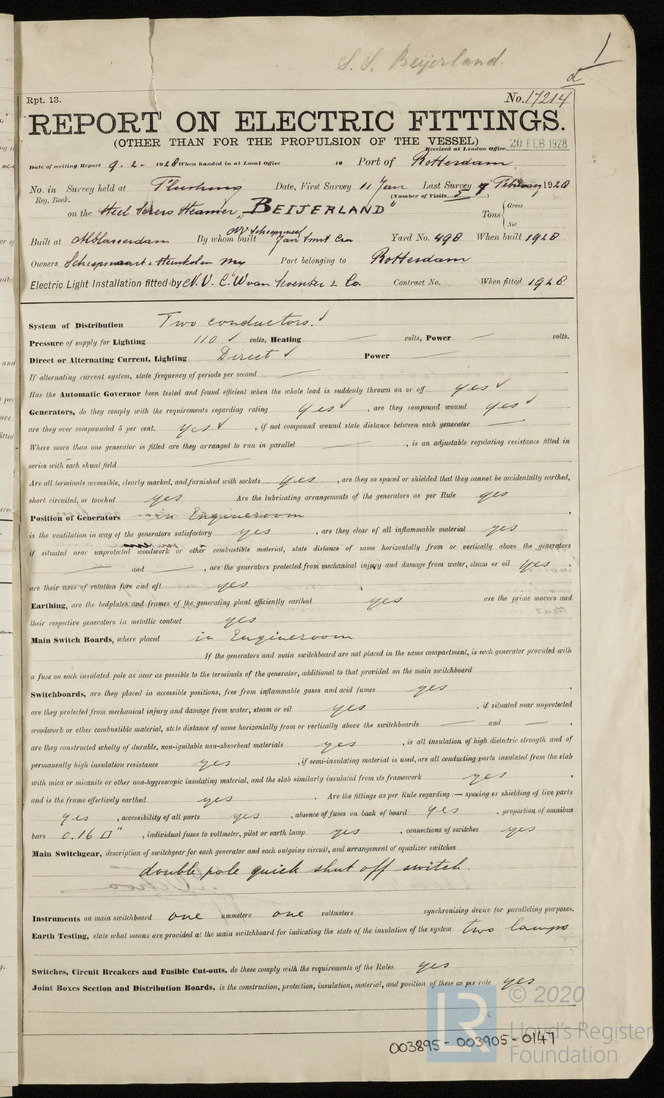 S.S. Beijerland.
1
d
Rpt. 13.
No. 17214
REPORT ON ELECTRIC FITTINGS.
(OTHER THAN FOR THE PROPULSION OF THE VESSEL)
Received at London Office 20 FEB 1928
Date of writing Report 9-2-1928 When handed in at Local Office 19 Port of Rotterdam
No. in Survey held at Flushing Date, First Survey 11 Jan Last Survey 7 February 1928
Reg. Book. (Number of Visits 5)
on the Steel Screw Steamer "BEIJERLAND" Tons { Gross
Net
Built at Alblasserdam By whom built Jan Smit Czn Yard No. 498 When built 1928
Owners Scheepvaart & Steenkolen My Port belonging to Rotterdam
Electric Light Installation fitted by N.V. C.W. van Contract No. When fitted 1928
System of Distribution Two conductors.
Pressure of supply for Lighting 110 volts, Heating — volts, Power — volts.
Direct or Alternating Current, Lighting Direct Power —
If alternating current system, state frequency of periods per second —
Has the Automatic Governor been tested and found efficient when the whole load is suddenly thrown on or off yes
Generators, do they comply with the requirements regarding rating yes, are they compound wound yes
are they over compounded 5 per cent. yes, if not compound wound state distance between each generator —
Where more than one generator is fitted are they arranged to run in parallel —, is an adjustable regulating resistance fitted in
series with each shunt field —
Are all terminals accessible, clearly marked, and furnished with sockets yes, are they so spaced or shielded that they cannot be accidentally earthed,
short circuited, or touched yes Are the lubricating arrangements of the generators as per Rule yes
Position of Generators in Engineroom
is the ventilation in way of the generators satisfactory yes, are they clear of all inflammable material yes
if situated near unprotected woodwork or other combustible material, state distance of same horizontally from or vertically above the generators
— and —, are the generators protected from mechanical injury and damage from water, steam or oil yes.
are their axes of rotation fore and aft yes
Earthing, are the bedplates and frames of the generating plant efficiently earthed yes are the prime movers and
their respective generators in metallic contact yes
Main Switch Boards, where placed in Engineroom
If the generators and main switchboard are not placed in the same compartment, is each generator provided with
a fuse on each insulated pole as near as possible to the terminals of the generator, additional to that provided on the main switchboard
Switchboards, are they placed in accessible positions, free from inflammable gases and acid fumes yes.
are they protected from mechanical injury and damage from water, steam or oil yes, if situated near unprotected
woodwork or other combustible material, state distance of same horizontally from or vertically above the switchboards — and —.
are they constructed wholly of durable, non-ignitable non-absorbent materials yes, is all insulation of high dielectric strength and of
permanently high insulation resistance yes, if semi-insulating material is used, are all conducting parts insulated from the slab
with mica or micanite or other non-hygroscopic insulating material, and the slab similarly insulated from its framework yes.
and is the frame effectively earthed yes. Are the fittings as per Rule regarding:— spacing or shielding of live parts
yes, accessibility of all parts yes, absence of fuses on back of board yes, proportion of omnibus
bars 0.16 □", individual fuses to voltmeter, pilot or earth lamp yes, connections of switches yes
Main Switchgear, description of switchgear for each generator and each outgoing circuit, and arrangement of equalizer switches
double pole quick shut off switch
Instruments on main switchboard one ammeters one voltmeters synchronising device for paralleling purposes.
Earth Testing, state what means are provided at the main switchboard for indicating the state of the insulation of the system two lamps
Switches, Circuit Breakers and Fusible Cut-outs, do these comply with the requirements of the Rules yes
Joint Boxes Section and Distribution Boards, is the construction, protection, insulation, material, and position of these as per rule yes
LR © 2020
Lloyd's Register
Foundation
003895-003905-0147